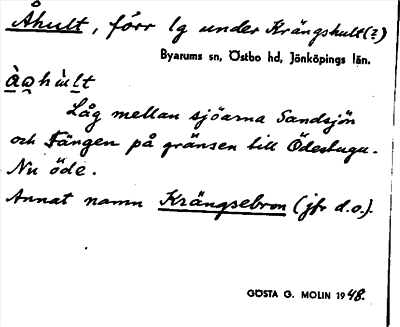 Åhult, förr lg under Krängshult(?)
Byarums sn, Östbo hd, Jönköpings län.
à̱o̱hùḻt
Låg mellan sjöarna Sandsjön
och Fängen på gränsen till Ödestugu.
Nu öde.
Annat namn Krängsebron (jfr d.o.).
GÖSTA G. MOLIN 1948.